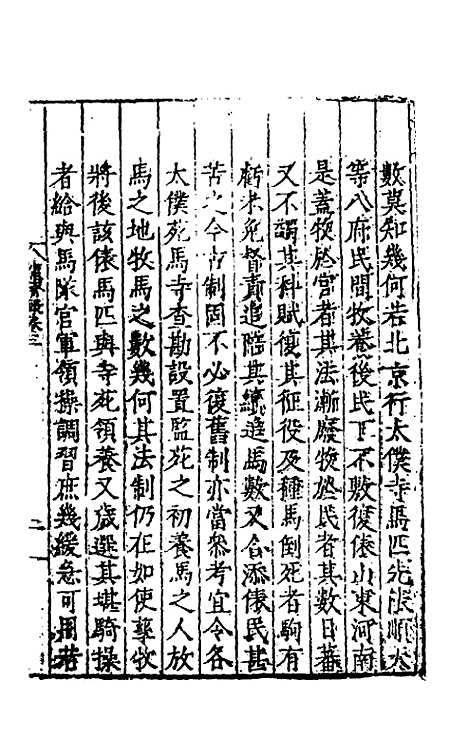 數莫知幾何若北京行太僕寺馬匹先俵順天
等八府民間牧養後民丁不敷復俵山東河南
是蓋牧於官者其法漸廢牧於民者其數日蕃
又不蠲其科賦復其征役及種馬倒死者駒有
虧未免督責追陪其續追馬數又合添俵民甚
苦之今古制固不必復舊制亦當參考宜令各
太僕苑馬寺查勘設置監苑之初養馬之人放
馬之地牧馬之數幾何其法制仍在如使孳牧
將後該俵馬匹與寺苑領養又歲選其堪騎操
者給與馬隊官軍領操調習庶幾緩急可用若
卷三